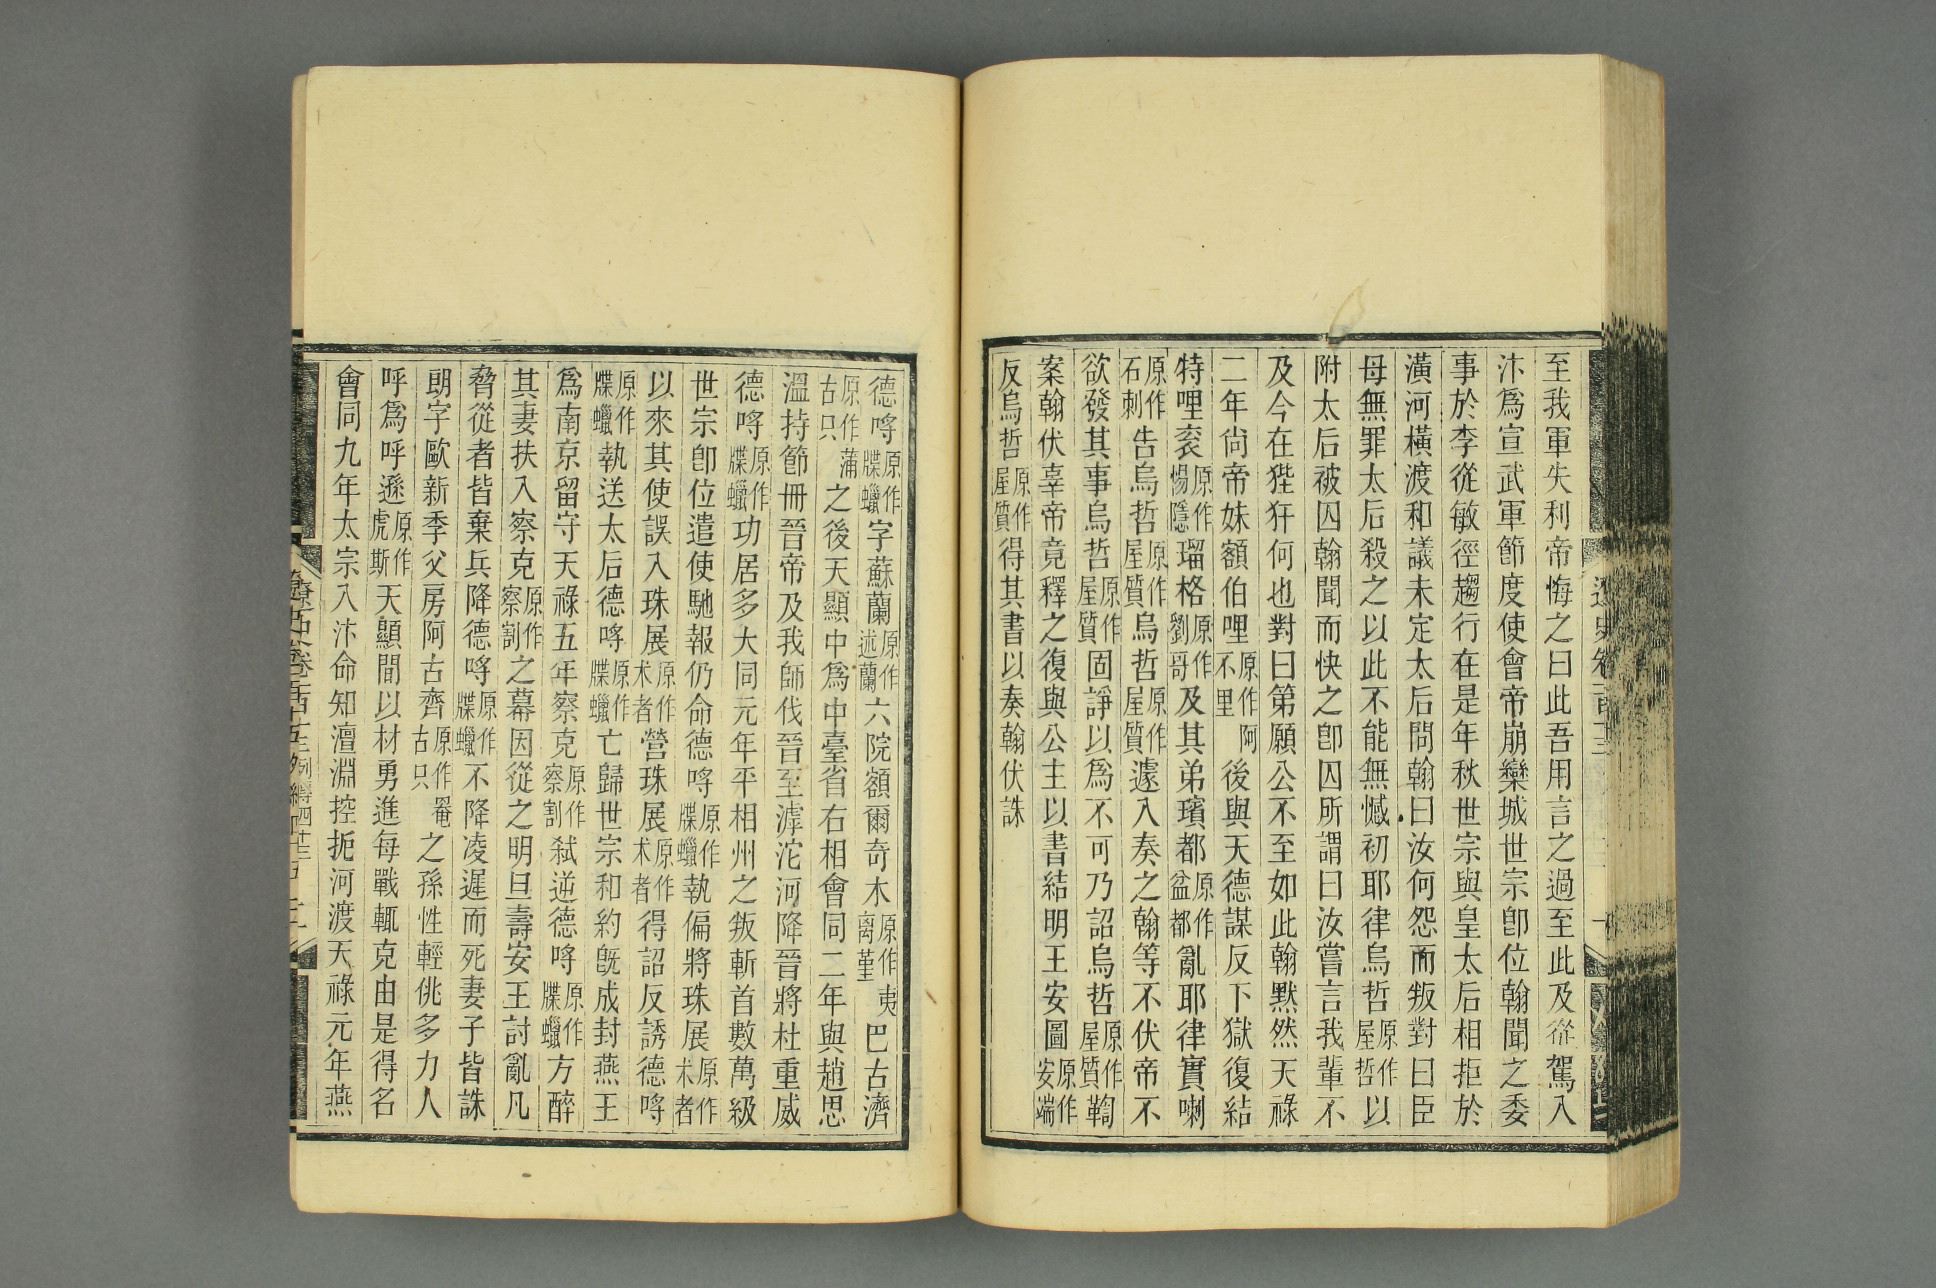 至我軍失利帝悔之曰此吾用言之過至此及從駕入
汴爲宣武軍節度使會帝崩欒城世宗卽位翰聞之委
事於李從敏徑趨行在是年秋世宗與皇太后相拒於
潢河橫渡和議未定太后問翰曰汝何怨而叛對曰臣
母無罪太后殺之以此不能無憾初耶律烏哲原作屋哲以
附太后被囚翰聞而快之卽囚所謂曰汝嘗言我輩不
及今在狴犴何也對曰第願公不至如此翰默然天祿
二年尙帝妹額伯哩原作阿不里後與天德謀反下獄復結
特哩袞原作惕隱瑠格原作劉哥及其弟璸都原作盆都亂耶律實喇
原作石刺告烏哲原作屋質烏哲原作屋質遽入奏之翰等不伏帝不
欲發其事烏哲原作屋質固諍以爲不可乃詔烏哲原作屋質鞫
案翰伏辜帝竟釋之復與公主以書結明王安圖原作安端
反烏哲原作屋質得其書以奏翰伏誅
德哷原作牒蠟字蘇蘭原作述蘭六院額爾奇木原作夷离堇巴古濟
原作蒲古只之後天顯中爲中臺省右相會同二年與趙思
溫持節冊晉帝及我師伐晉至滹沱河降晉將杜重威
德哷原作牒蠟功居多大同元年平相州之叛斬首數萬級
世宗卽位遣使馳報仍命德哷原作牒蠟執偏將珠展原作术者
以來其使誤入珠展原作术者營珠展原作术者得詔反誘德哷
原作牒蠟執送太后德哷原作牒蠟亡歸世宗和約旣成封燕王
爲南京留守天祿五年察克原作察割弒逆德哷原作牒蠟方醉
其妻扶入察克原作察割之幕因從之明旦壽安王討亂凡
脅從者皆棄兵降德哷原作牒蠟不降凌遲而死妻子皆誅
朗字歐新季父房阿古齊原作罨古只之孫性輕佻多力人
呼爲呼遜原作虎斯天顯間以材勇進每戰輒克由是得名
會同九年太宗入汴命知澶淵控扼河渡天祿元年燕